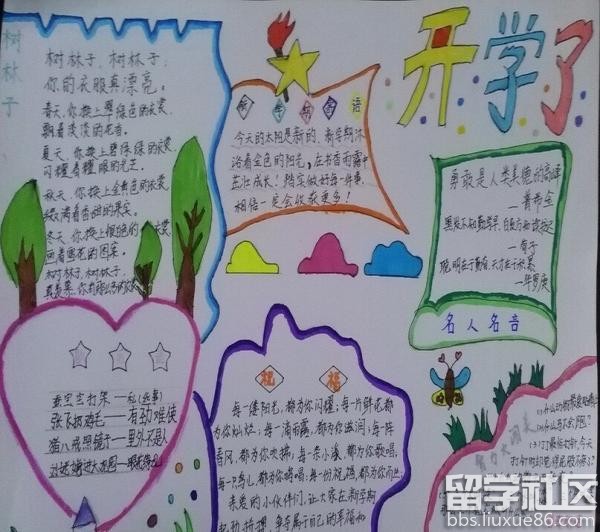 开学了
树林子
树林子、树林子,
你的衣服真漂亮。
春天,你换上翠绿色的衣裳
飘着淡淡的花香。
夏天,你换上翠绿绿的衣裳
闪耀着耀眼的光芒。
秋天,你换上金黄色的衣裳
缀满着香甜的果实。
冬天,你换上银色的衣裳
画着雪花的图案。
树林子,树林子,
新学期寄语
今天的太阳是新的,新学期沐
浴着金色的阳光,在书香雨露中
茁壮成长!踏实做好每一件事,
相信一定会收获更多!
勇敢是人类美德的高峰
—普希金
黑发不知勤学早,白首方知读书迟
—荀子
聪明在于勤奋,天才在于积累
—华罗庚
名人名言
蚕宝宝打架——私(丝)事
张飞捉鸡毛——有劲难使
猪八戒照镜子——里外不是人
祝福
每一缕阳光,都为你闪耀;每一片鲜花,都
为你灿烂;每一滴雨露,都为你滋润;每一阵
春风,都为你吹拂;每一条小溪,都为你歌唱,
每一只鸟儿,都为你啼唱;每一份祝福,都为你而生
亲爱的小伙伴们,让大家在新学期
留学社区
bbs.liuxue86.com